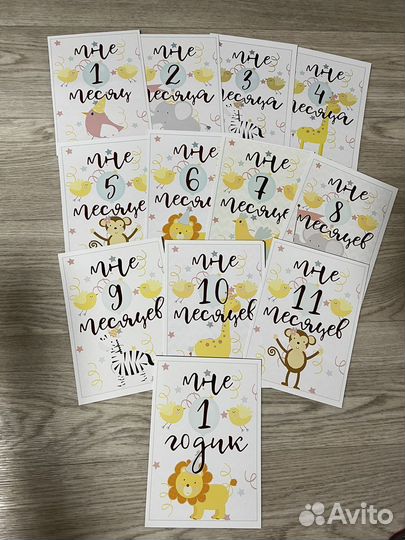 мне
1
месяц
мне
2
месяца
мне
3
месяца
мне
4
месяца
мне
5
месяцев
мне
6
месяцев
мне
7
месяцев
мне
8
месяцев
мне
9
месяцев
мне
10
месяцев
мне
11
месяцев
мне
1
годик
Avito